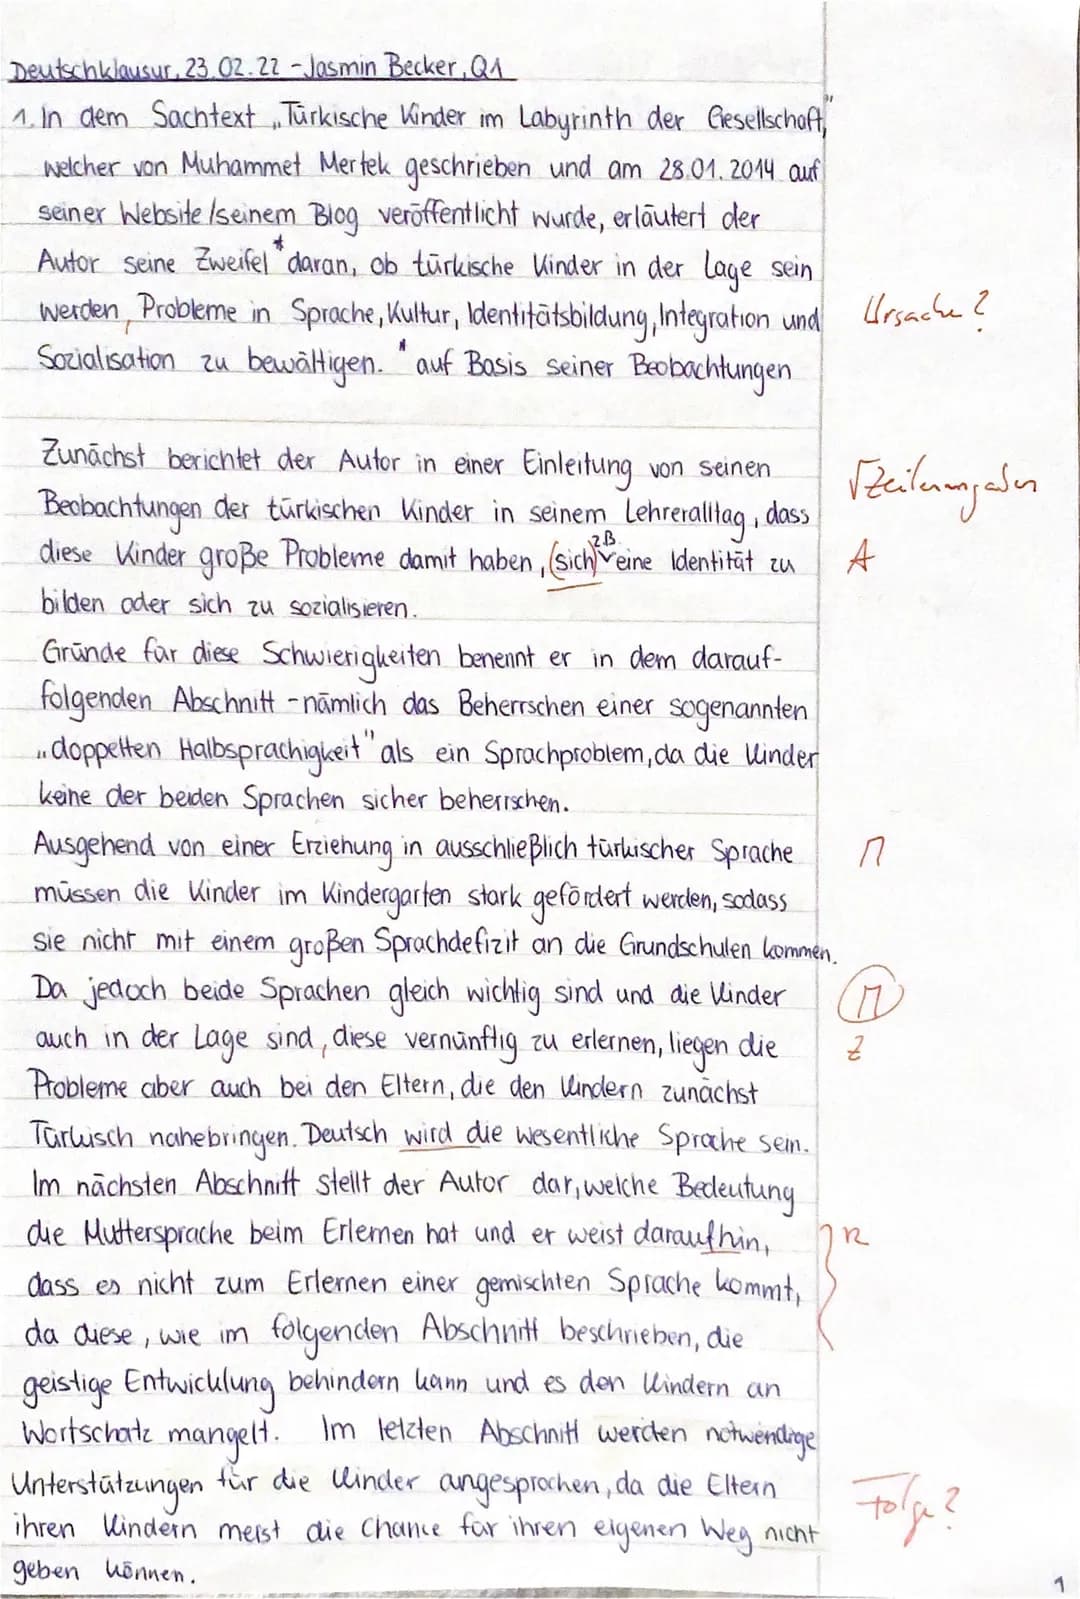 Deutschklausur, 23.02.22 - Jasmin Becker, Q1
1. In dem Sachtext „Türkische Kinder im Labyrinth der Gesellschaft,"
welcher von Muhammet Mertek geschrieben und am 28.01.2014 auf
seiner Website/seinem Blog veröffentlicht wurde, erläutert der
Autor seine Zweifel * daran, ob türkische Kinder in der Lage sein
werden, Probleme in Sprache, Kultur, Identitätsbildung, Integration und
Ursache?
Sozialisation zu bewältigen. * auf Basis seiner Beobachtungen
Zunächst berichtet der Autor in einer Einleitung von seinen
√Zeilenangaben
Beobachtungen der türkischen Kinder in seinem Lehreralltag, dass
diese Kinder große Probleme damit haben, (sich) z.B. eine Identität zu
A
bilden oder sich zu sozialisieren.
Gründe für diese Schwierigkeiten benennt er in dem darauf-
folgenden Abschnitt - nämlich das Beherrschen einer sogenannten
„doppelten Halbsprachigkeit" als ein Sprachproblem, da die Kinder
keine der beiden Sprachen sicher beherrschen.
Ausgehend von einer Erziehung in ausschließlich türkischer Sprache
müssen die Kinder im Kindergarten stark gefördert werden, sodass
sie nicht mit einem großen Sprachdefizit an die Grundschulen kommen.
Da jedoch beide Sprachen gleich wichtig sind und die Kinder
auch in der Lage sind, diese vernünftig zu erlernen, liegen die
Z
Probleme aber auch bei den Eltern, die den Kindern zunächst
Türkisch nahebringen. Deutsch wird die wesentliche Sprache sein.
Im nächsten Abschnitt stellt der Autor dar, welche Bedeutung
die Muttersprache beim Erlernen hat und er weist daraufhin,
R
dass es nicht zum Erlernen einer gemischten Sprache kommt,
da diese, wie im folgenden Abschnitt beschrieben, die
geistige Entwicklung behindern kann und es den Kindern an
Wortschatz mangelt. Im letzten Abschnitt werden notwendige
Unterstützungen für die Kinder angesprochen, da die Eltern
Folge?
ihren Kindern meist die Chance für ihren eigenen Weg nicht
geben können.
1